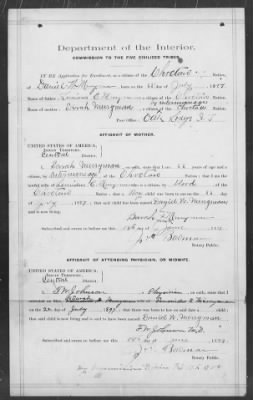 Department of the Interior,
COMMISSION TO THE FIVE CIVILIZED TRIBES.
IN RE Application for Enrollment, as a citizen of the Choctaw Nation,
of Daniel W. Merryman, born on the 22 day of July, 1897
Name of Father: a citizen of the Choctaw Nation.
by intermarriage
Name of mother: Sarah Merryman a citizen of the Choctaw Nation.
Post Office: Oak Lodge I. T.
AFFIDAVIT OF MOTHER.
UNITED STATES OF AMERICA,
INDIAN TERRITORY,
Central District.
I, Sarah Merryman, on oath state that I am years of age and a
citizen by intermarriage of the Choctaw Nation; that I am the
lawful wife of Merryman, who is a citizen, by blood of the
Choctaw Nation; that a boy child was born to me on the 22 day
of July, 1897, that said child has been named Daniel W. Merryman
and is now living.
Sarah Merryman
Subscribed and sworn to before me this day of June
Notary Public.
AFFIDAVIT OF ATTENDING PHYSICIAN, OR MIDWIFE.
UNITED STATES OF AMERICA,
INDIAN TERRITORY,
Central District.
I, F W Johnson, a Physician, on oath, state that I
attended on Mrs. Merryman, wife of Merryman
on the 22 day of July, 1897, that there was born to her on said date a child;
that said child is now living and is said to have been named Daniel W. Merryman
F W Johnson M.D.
Subscribed and sworn to before me this day of June
Notary Public.
My Commission